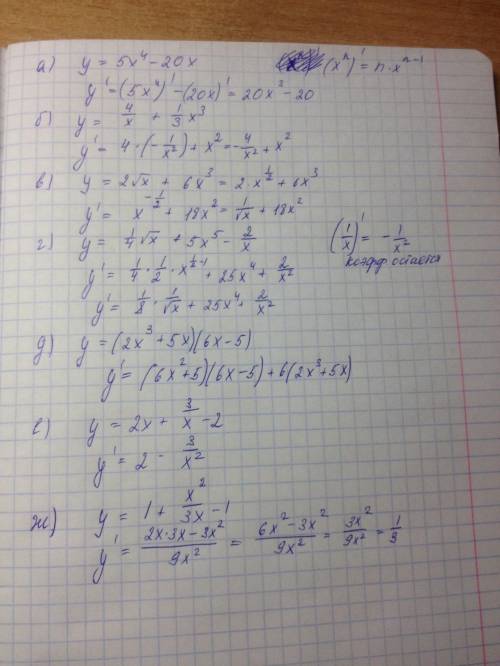 а) y = 5x⁴ - 20x (xⁿ)' = n·xⁿ⁻¹
y' = (5x⁴)' - (20x)' = 20x³ - 20
б) y = 4/x + 1/3 x³
y' = 4·(-1/x²) + x² = -4/x² + x²
в) y = 2√x + 6x³ = 2·x^(1/2) + 6x³
y' = x^(-1/2) + 18x² = 1/√x + 18x²
г) y = 1/4 √x + 5x⁵ - 2/x (1/x)' = -1/x²
коэфф остается
y' = 1/4 · 1/2 · x^(1/2-1) + 25x⁴ + 2/x²
y' = 1/8 · 1/√x + 25x⁴ + 2/x²
д) y = (2x³ + 5x)(6x - 5)
y' = (6x² + 5)(6x - 5) + 6(2x³ + 5x)
е) y = 2x + 3/x - 2
y' = 2 - 3/x²
ж) y = 1 + x²/3x - 1
y' = (2x·3x - 3x²)/9x² = (6x² - 3x²)/9x² = 3x²/9x² = 1/3